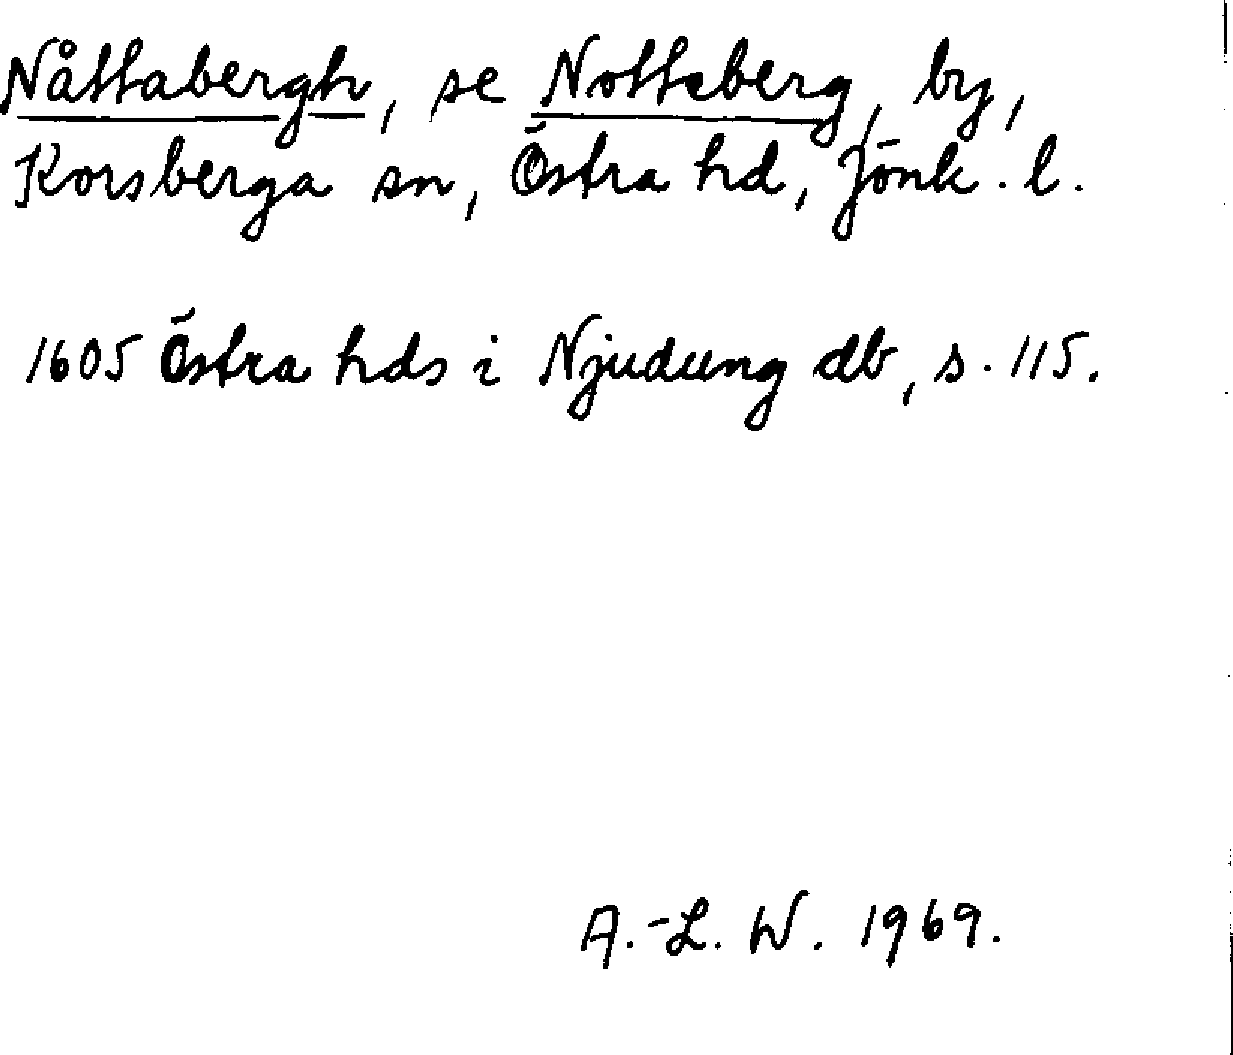 Nåttabergh, se Notteberg, by,
Korsberga sn, Östra hd, Jönk. l.
1605 Östra hds i Njudung db, s. 115.
A.-L. W. 1969.